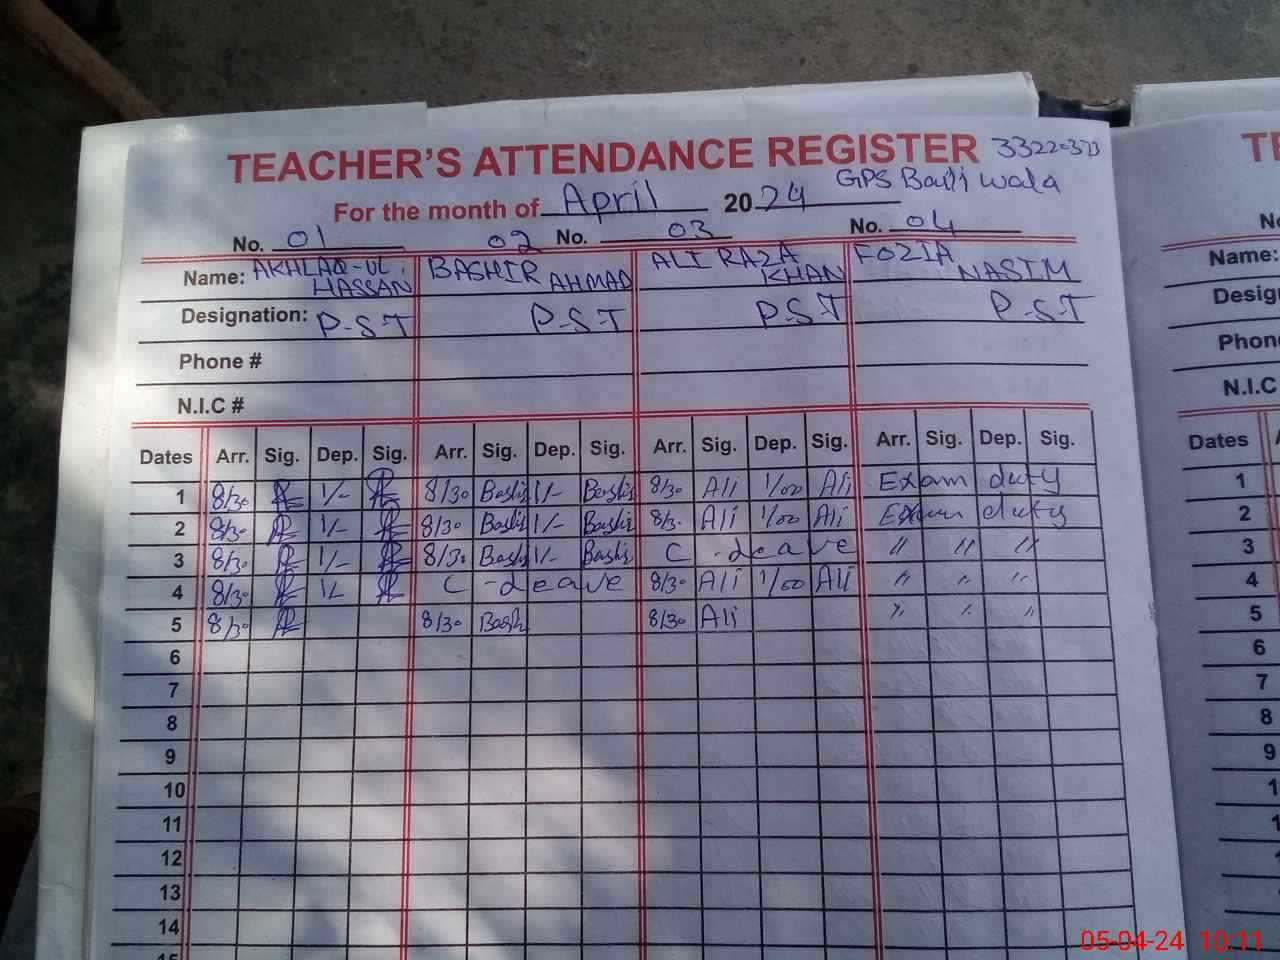 TEACHER'S ATTENDANCE REGISTER
GPS Wala
For the month of April 2024
No. 01 02 No. 03 No. 04
Name: AKHLAQ-UL HASSAN BASHIR AHMAD ALI RAZA KHAN FOZIA NASIM Name:
Designation: P-S-T P-S-T P-S-T P-S-T
Phone #
N.I.C # N.I.C
Dates Arr. Sig. Dep. Sig. Arr. Sig. Dep. Sig. Arr. Sig. Dep. Sig. Arr. Sig. Dep. Sig. Dates
1 8/30 1/- 8/30 Bashir 1/- Bashir 8/30 Ali 1/00 Ali Exam duty 1
2 8/30 1/- 8/30 Bashir 1/- Bashir 8/3. Ali 1/00 Ali Exam duty 2
3 8/30 1/- 8/30 Bashir 1/- Bashir C - leave " " " 3
4 8/30 1/- C - leave 8/30 Ali 1/00 Ali " " " 4
5 8/30 8/30 Bashir 8/30 Ali " " " 5
6 6
7 7
8 8
9 9
10
11
12
13
14
15
05-04-24 10:11